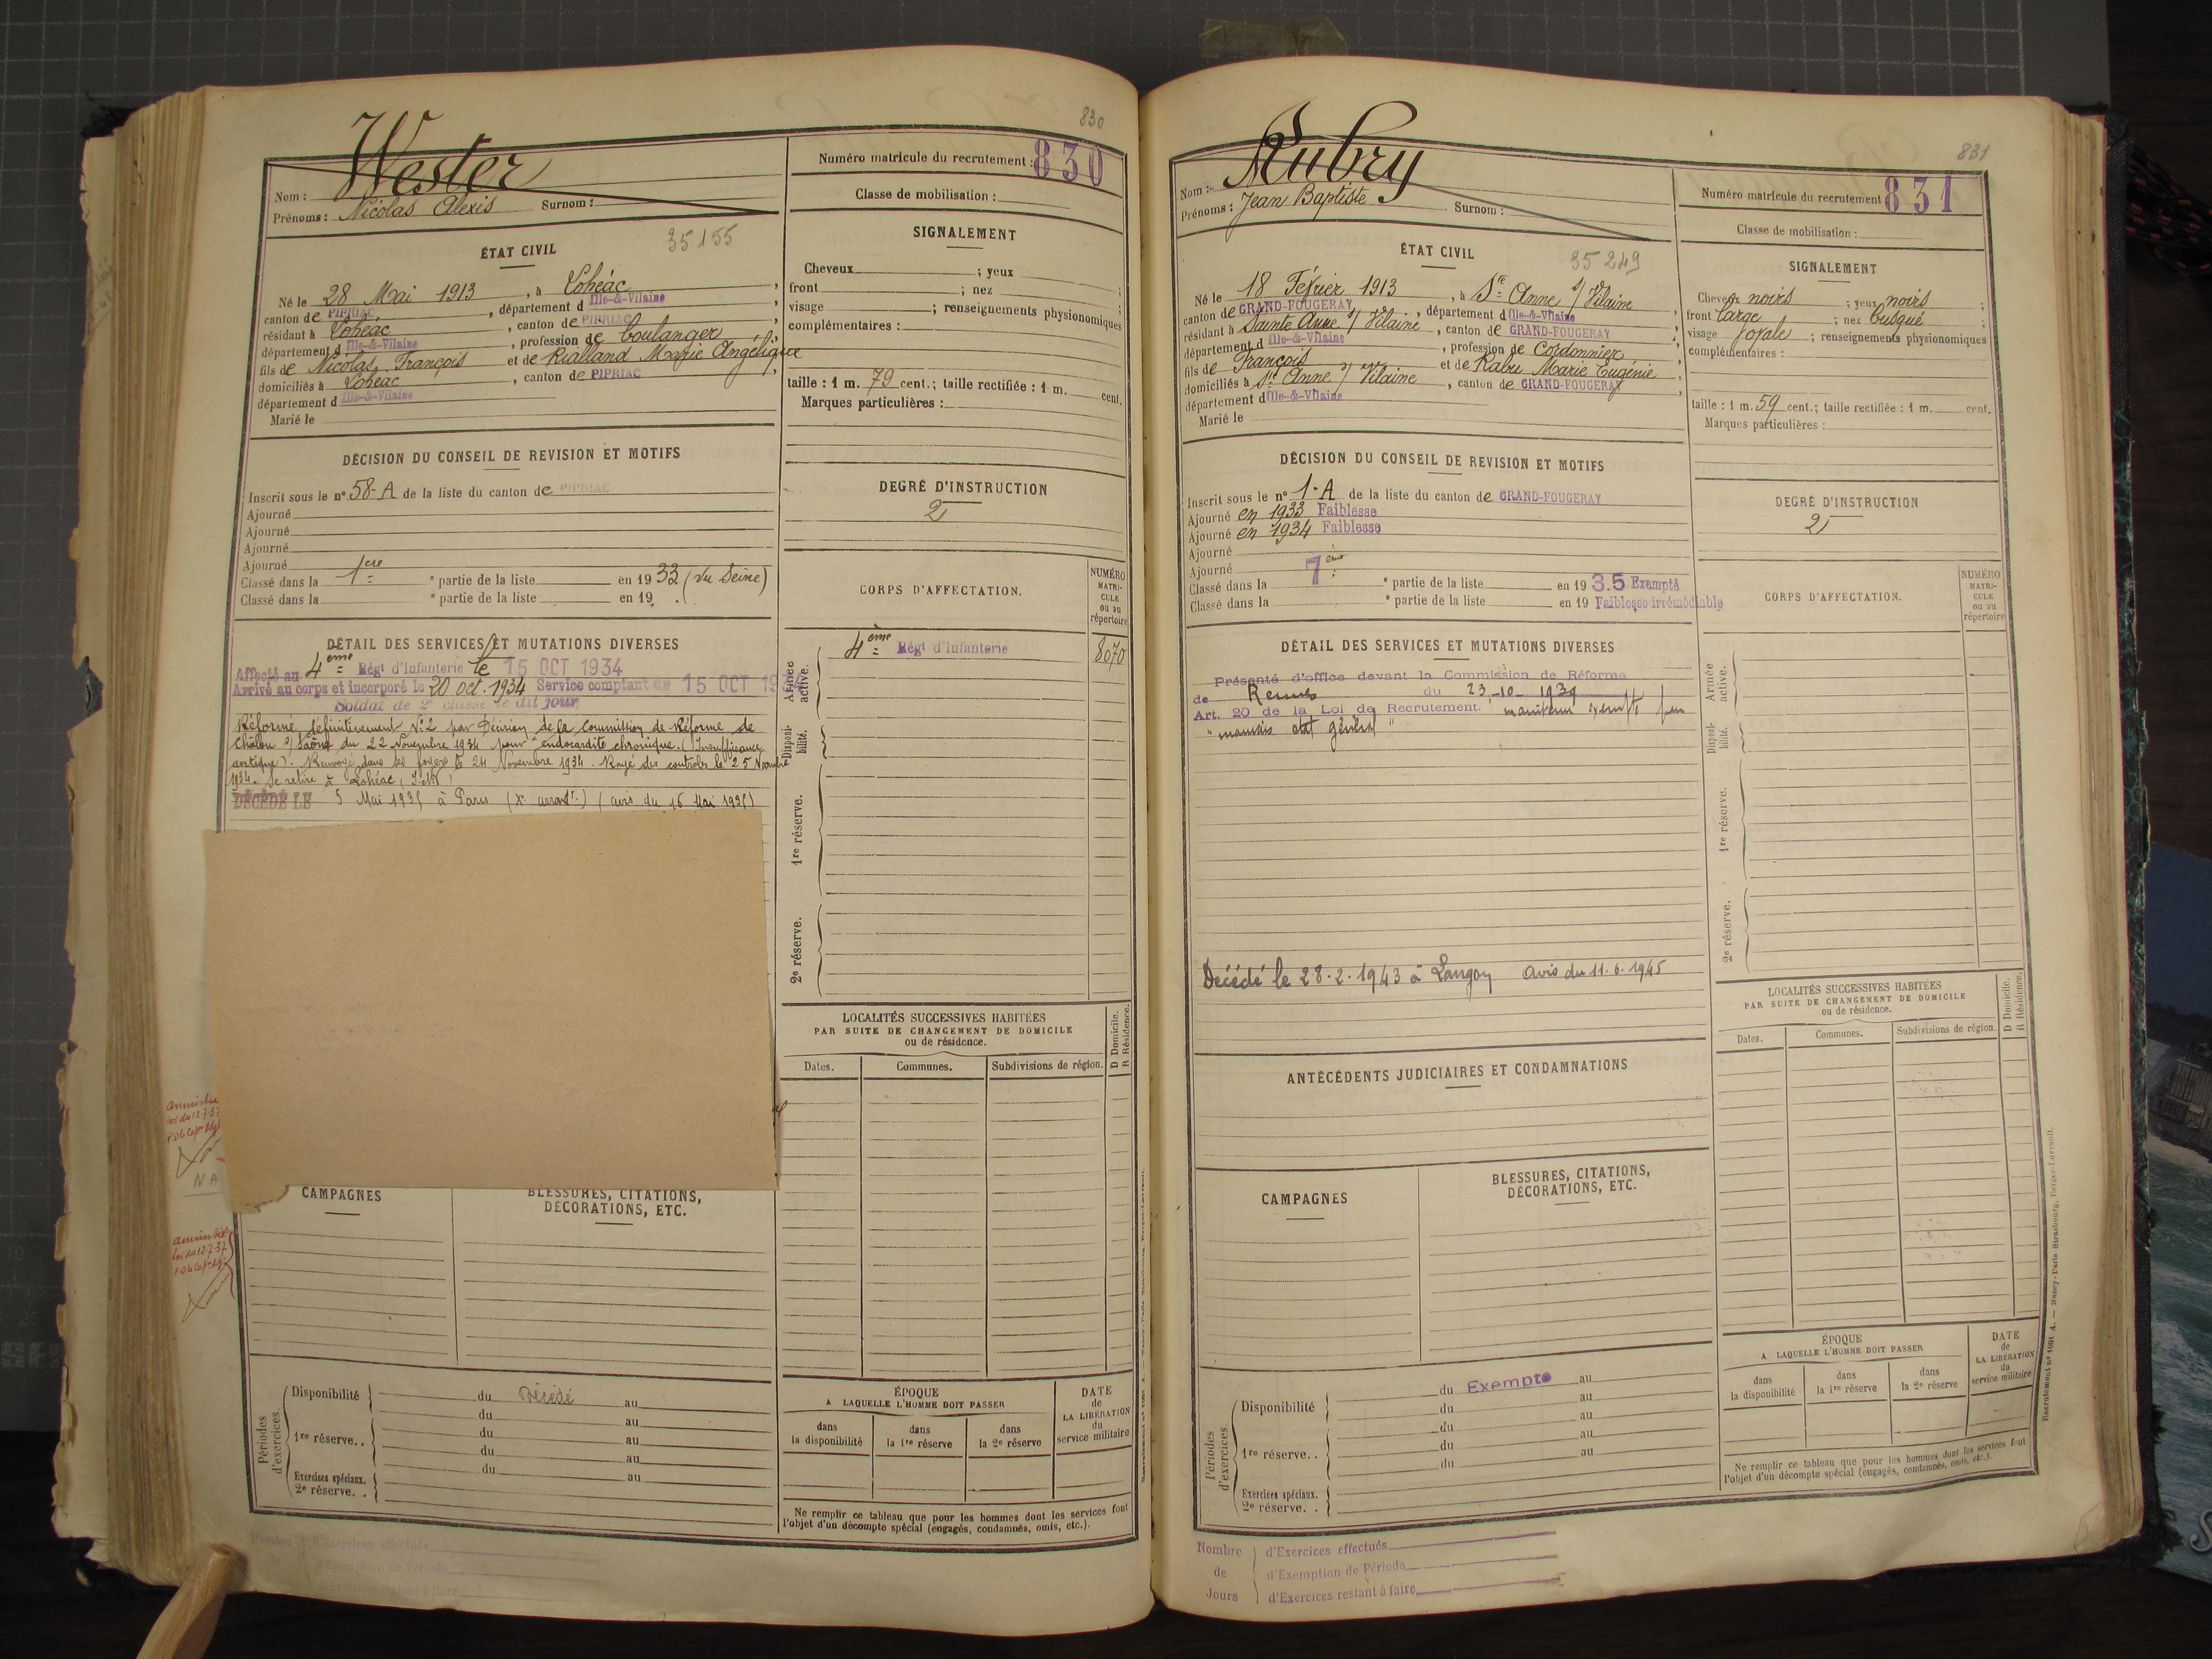 830
Wester
Nom :
Prénoms : Nicolas Alexis Surnom :
Numéro matricule du recrutement : 830
Classe de mobilisation :
ÉTAT CIVIL
35155
Né le 28 Mai 1913, à Lohéac,
canton de PIPRIAC, département d Ille-&-Vilaine,
résidant à Lohéac, canton de PIPRIAC,
département d Ille-&-Vilaine, profession de boulanger,
fils de Nicolas, François et de Rialland Marie Angélique
domiciliés à Lohéac, canton de PIPRIAC,
département d Ille-&-Vilaine
Marié le
SIGNALEMENT
Cheveux ; yeux ;
front ; nez ;
visage ; renseignements physionomiques
complémentaires :
taille : 1 m. 79 cent. ; taille rectifiée : 1 m. cent.
Marques particulières :
DÉCISION DU CONSEIL DE REVISION ET MOTIFS
Inscrit sous le n° 58-A de la liste du canton de PIPRIAC
Ajourné
Ajourné
Ajourné
Ajourné
Classé dans la 1ere e partie de la liste en 1933 (vu Seine)
Classé dans la e partie de la liste en 19 .
DEGRÉ D'INSTRUCTION
2
CORPS D'AFFECTATION.
NUMÉRO
MATRI-
CULE
ou au
répertoire
DÉTAIL DES SERVICES ET MUTATIONS DIVERSES
Affecté au 4eme Régt d'Infanterie le 15 OCT 1934
Arrivé au corps et incorporé le 20 oct. 1934 Service comptant du 15 OCT 19
Soldat de 2e classe le dit jour
Réformé définitivement N°2 par Décision de la Commission de Réforme de
Châlon s/ Saône du 22 Novembre 1934 pour "endocardite chronique. (Insuffisance
aortique). Renvoyé dans ses foyers le 24 Novembre 1934. Rayé des contrôles le 25 Novembre
1934. Se retire à Lohéac (I. et V.)
DÉCÉDÉ LE 5 Mai 1935 à Paris (avis du 16 Mai 1935)
4eme Régt d'Infanterie 8070
Armée
active.
Disponi-
bilité.
1re réserve.
2e réserve.
LOCALITÉS SUCCESSIVES HABITÉES
PAR SUITE DE CHANGEMENT DE DOMICILE
ou de résidence.
D Domicile.
R Résidence.
Dates. Communes. Subdivisions de région.
amnistie
loi du 12-7-37
N A
amnistié
loi du 12-7-37
CAMPAGNES
BLESSURES, CITATIONS,
DÉCORATIONS, ETC.
Périodes
d'exercices.
Disponibilité du Décédé au
du au
1re réserve. . du au
du au
du au
Exercices spéciaux.
2e réserve. .
ÉPOQUE
A LAQUELLE L'HOMME DOIT PASSER
dans
la disponibilité
dans
la 1re réserve
dans
la 2e réserve
DATE
de
LA LIBÉRATION
du
service militaire
Ne remplir ce tableau que pour les hommes dont les services font
l'objet d'un décompte spécial (engagés, condamnés, omis, etc.).
Nombre d'Exercices effectués
de d'Exemption de Période
d'Exercices restant à faire
831
Aubry
Nom :
Prénoms : Jean Baptiste Surnom :
Numéro matricule du recrutement 831
Classe de mobilisation :
ÉTAT CIVIL
35249
Né le 18 Février 1913, à Ste Anne s/ Vilaine
canton de GRAND-FOUGERAY, département d Ille-&-Vilaine,
résidant à Sainte Anne s/ Vilaine, canton de GRAND-FOUGERAY,
département d Ille-&-Vilaine, profession de Cordonnier,
fils de François et de Rabu Marie Eugénie,
domiciliés à Ste Anne s/ Vilaine, canton de GRAND-FOUGERAY,
département d Ille-&-Vilaine
Marié le
SIGNALEMENT
Cheveux noirs ; yeux noirs ;
front large ; nez busqué ;
visage ; renseignements physionomiques
complémentaires :
taille : 1 m. 59 cent. ; taille rectifiée : 1 m. cent.
Marques particulières :
DÉCISION DU CONSEIL DE REVISION ET MOTIFS
Inscrit sous le n° 1-A de la liste du canton de GRAND-FOUGERAY
Ajourné en 1933 Faiblesse
Ajourné en 1934 Faiblesse
Ajourné
Ajourné
Classé dans la 7eme e partie de la liste en 193.5 Exempté
Classé dans la e partie de la liste en 19 Faiblesse irrémédiable
DEGRÉ D'INSTRUCTION
2
CORPS D'AFFECTATION.
NUMÉRO
MATRI-
CULE
ou au
répertoire
DÉTAIL DES SERVICES ET MUTATIONS DIVERSES
Présenté d'office devant la Commission de Réforme
de Rennes du 23-10-1939
Art. 20 de la Loi de Recrutement. maintenu exempté pour
" mauvais état général "
Décédé le 28.2.1943 à Langon Avis du 11.6.1945
Armée
active.
Disponi-
bilité.
1re réserve.
2e réserve.
ANTÉCÉDENTS JUDICIAIRES ET CONDAMNATIONS
LOCALITÉS SUCCESSIVES HABITÉES
PAR SUITE DE CHANGEMENT DE DOMICILE
ou de résidence.
D Domicile.
R Résidence.
Dates. Communes. Subdivisions de région.
CAMPAGNES
BLESSURES, CITATIONS,
DÉCORATIONS, ETC.
Périodes
d'exercices.
Disponibilité du Exempté au
du au
du au
1re réserve. . du au
du au
Exercices spéciaux.
2e réserve. .
ÉPOQUE
A LAQUELLE L'HOMME DOIT PASSER
dans
la disponibilité
dans
la 1re réserve
dans
la 2e réserve
DATE
de
LA LIBÉRATION
du
service militaire
Ne remplir ce tableau que pour les hommes dont les services font
l'objet d'un décompte spécial (engagés, condamnés, omis, etc.).
Nombre d'Exercices effectués
de d'Exemption de Période
Jours d'Exercices restant à faire
Recrutement n° 1001 A. — Nancy-Paris-Strasbourg, Berger-Levrault.